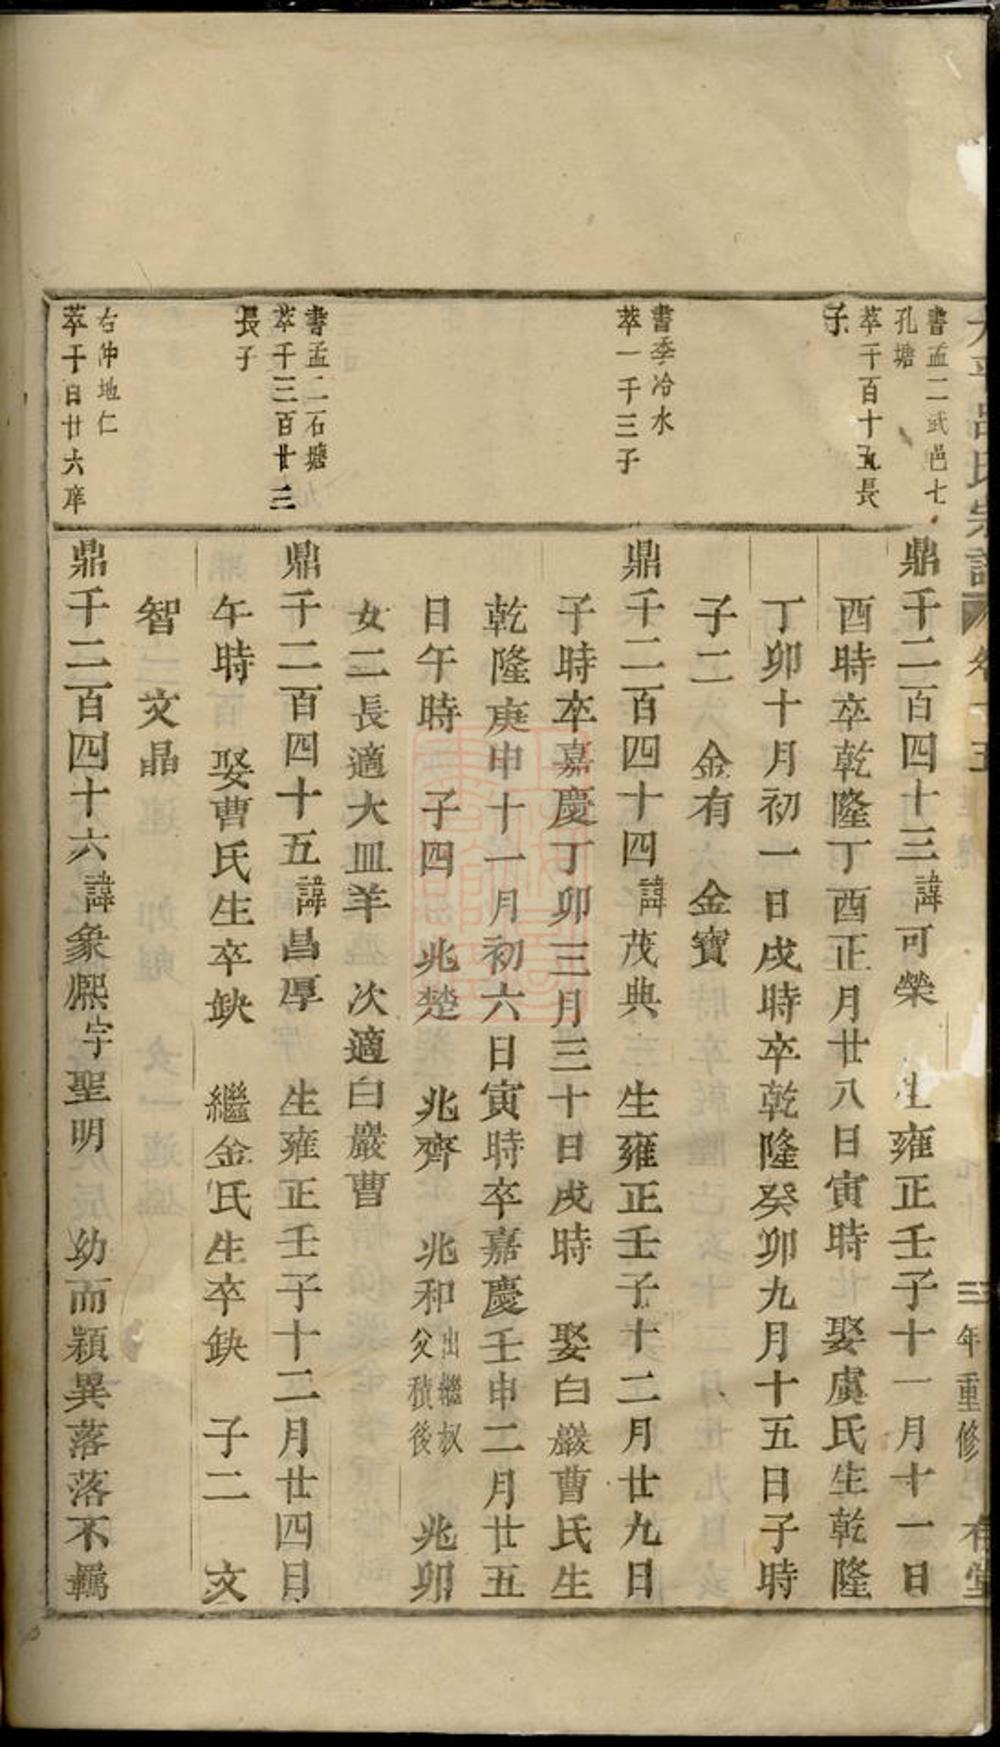 書孟二武邑七
孔塘
萃千百十五長
子
書季冷水
萃一千三子
書孟二石塘九
萃千三百廿三
長子
右仲地仁
萃千百廿六庠
鼎千二百四十三諱可榮 生雍正壬子十一月十一日
酉時卒乾隆丁酉正月廿八日寅時 娶虞氏生乾隆
丁卯十月初一日戌時卒乾隆癸卯九月十五日子時
子二 金有 金寶
鼎千二百四十四諱茂典 生雍正壬子十二月廿九日
子時卒嘉慶丁卯三月三十日戌時 娶白巖曹氏生
乾隆庚申十一月初六日寅時卒嘉慶壬申二月廿五
日午時 子四 兆楚 兆齊 兆和出繼叔父積後 兆卯
女二長適大皿羊 次適白巖曹
鼎千二百四十五諱昌厚 生雍正壬子十二月廿四日
午時 娶曹氏生卒缺 繼金氏生卒缺 子二 文
智 文晶
鼎千二百四十六諱象熙字聖明 幼而穎異落落不羈
氏宗譜 卷十五
年重修